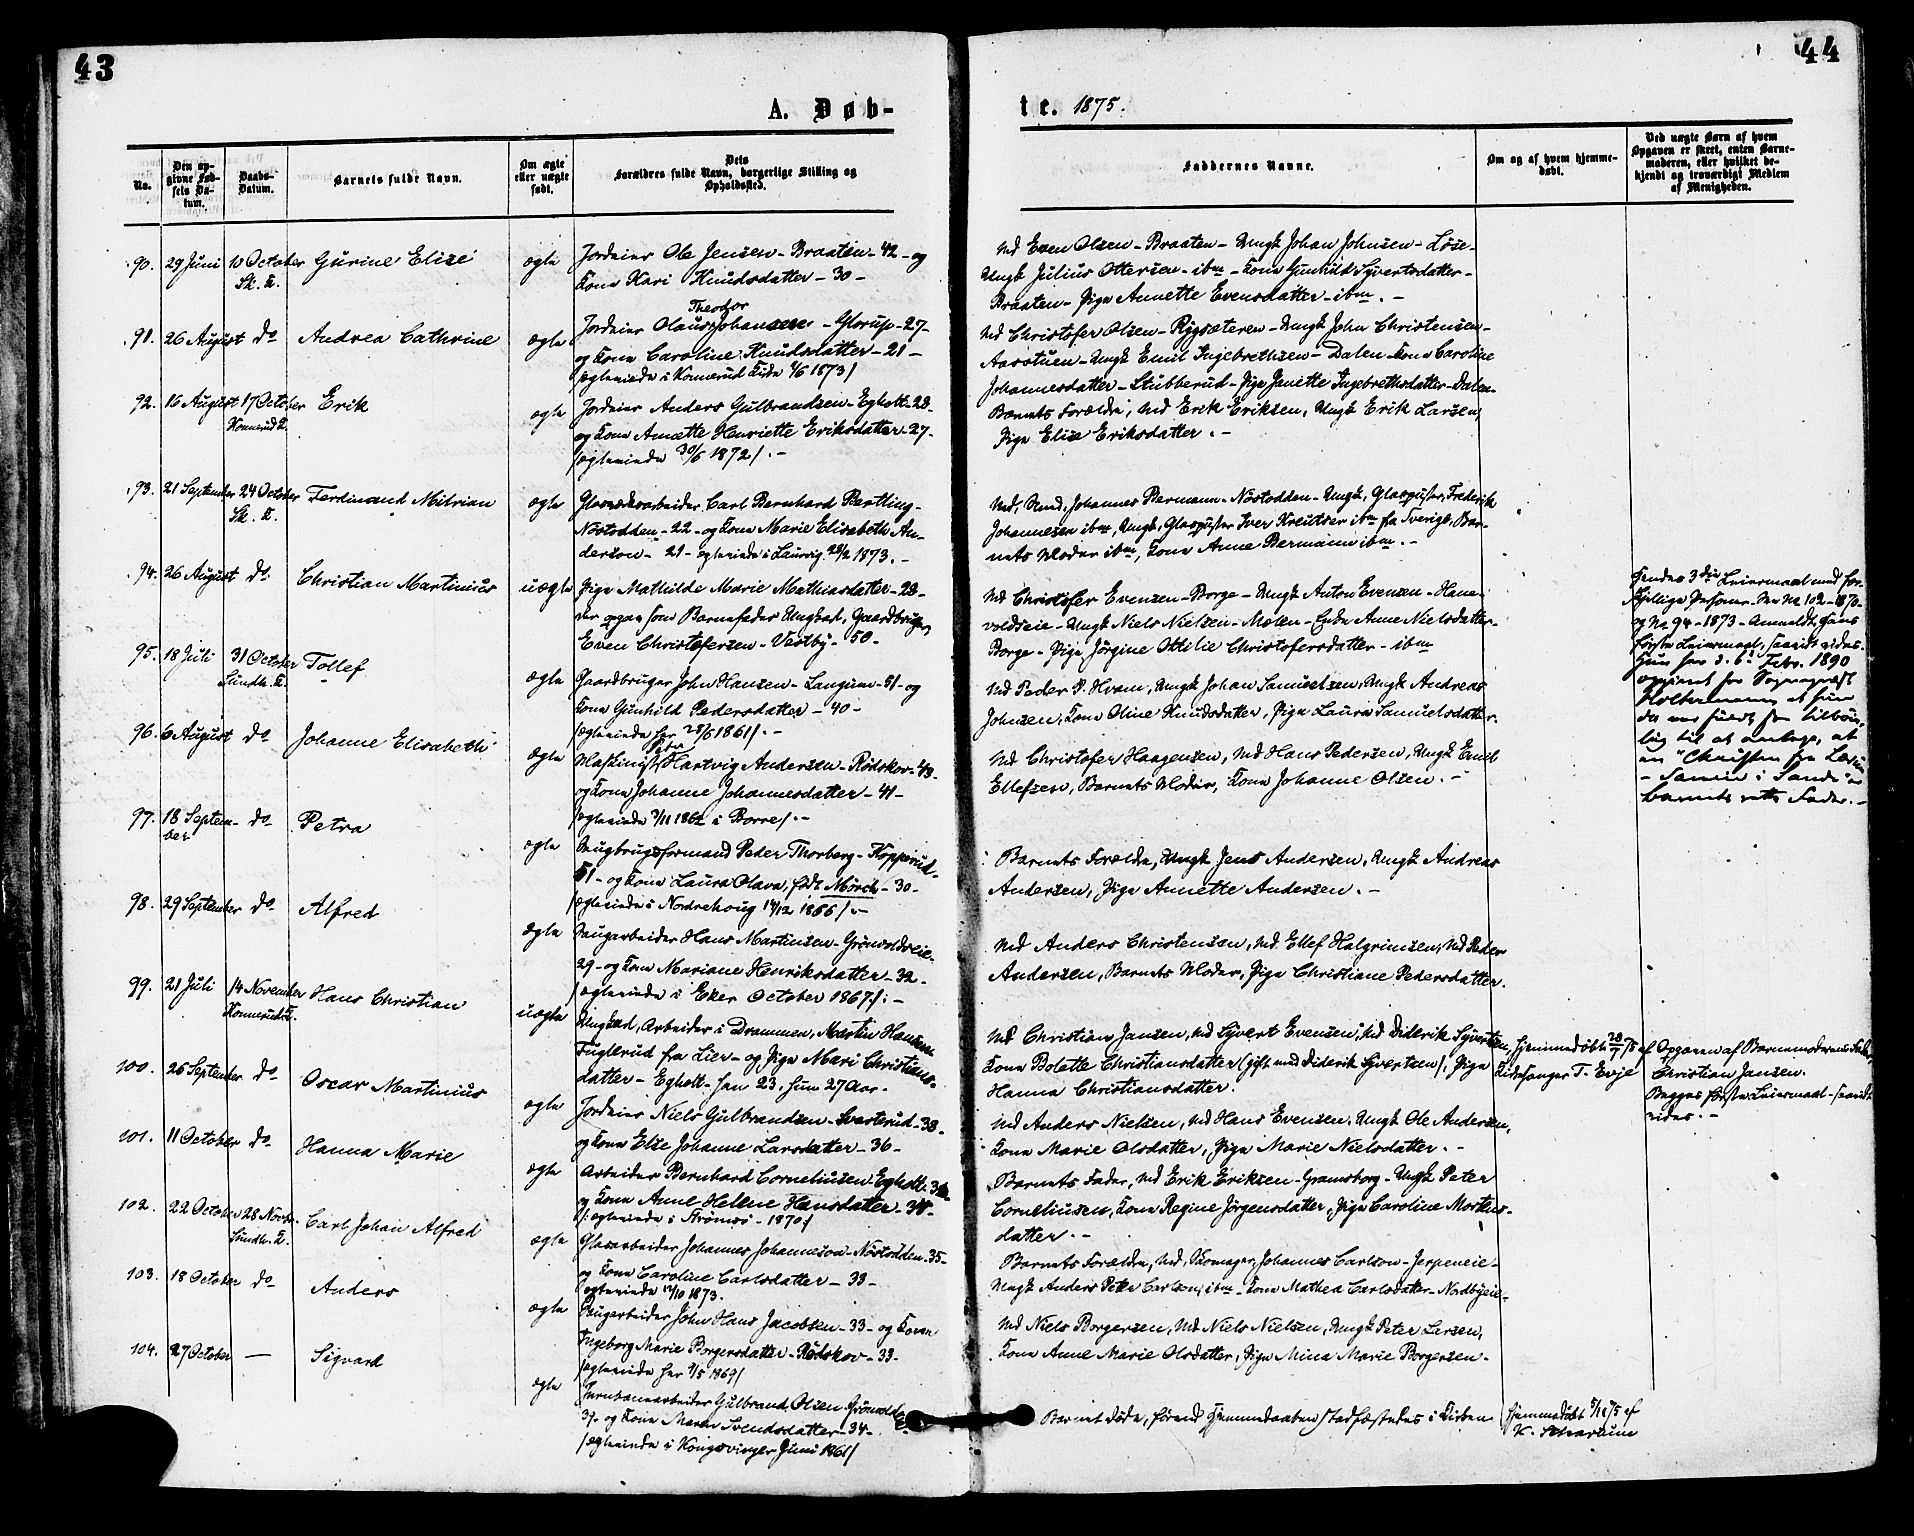 43
44
A. Døb-
te. 1875.
No.
Den op-
givne Fød-
sels Da-
tum.
Daabs-
Datum.
Barnets fulde Navn.
Om ægte
eller uægte
født.
Dets
Forældres fulde Navn, borgerlige Stilling og
Opholdssted.
Faddernes Navne.
Om og af hvem hjemme-
døbt.
Ved uægte Børn af hvem
Opgaven er skeet, enten Barne-
moderen, eller hvilket be-
kjendt og troværdigt Medlem
af Menigheden.
90. 29 Juni 10 October Gurine Elise ægte Jordeier Ole Jensen - Braaten - 42 - og
Sk. K.
Kone Kari Knudsdatter - 30 -
Md Even Olsen - Braaten - Ungk Johan Johnsen - Løse-
Ungk Julius Ottersen - ibm - Kone Gunhild Syvertsdatter -
Braaten - Pige Annette Evensdatter - ibm. -
91. 26 August do Andrea Cathrine ægte
Theodor
Jordeier Olaus Johansen - Glorup - 27 -
og Kone Caroline Knudsdatter - 21 -
/ægteviede i Konnerud Kirke 1/6 1873/
Md Christofer Olsen - Rygsæteren - Ungk John Christensen -
Aasstuen - Ungk Emil Ingebrethsen - Dalen - Kone Caroline
Johannesdatter - Stubberud - Pige Janette Ingebrethsdatter - Dalen -
92. 16 August 17 October Erik ægte Jordeier Anders Gulbrandsen - Egholt - 28 -
Konnerud K.
og Kone Annette Henriette Eriksdatter - 27 -
/ægteviede 30/5 1872/. -
Barnets Forældre, Md Erik Eriksen, Ungk Erik Larsen,
Pige Elise Eriksdatter. -
93. 21 September 24 October Ferdinand Milrian ægte Glasværksarbeider Carl Bernhard Bertling -
Sk. K.
Nøstodden - 22 - og Kone Marie Elisabeth An-
derson - 21 - ægteviede i Laurvig 28/2 1873. -
Johannes Bermann - Nøstodden - Ungk, Glaspuster Frederik
Johannesen ibm, Ungk, Glaspuster Iver Kreutser ibm fra Sverige, Bar-
nets Moder ibm, Kone Anne Bermann ibm. -
94. 26 August do. Christian Martinius uægte Pige Mathilde Marie Mathiasdatter - 28 -
der opgav som Barnefader Ungkarl, Gaardbruger
Even Christofersen - Vestby - 50 -
Md Christofer Evensen - Borge - Ungk Anton Evensen - Hane-
voldseie - Ungk Niels Nielsen - Molen - Enke Anne Nielsdatter -
Borge - Pige Jørgine Ottilie Christofersdatter - ibm
Hendes 3die Leiermaal med for-
skjellige Personer - No 102 - 1870 -
og No 94 - 1873 - Anmeldt, hans
første Leiermaal, saavidt vides.
Hun har d. 6 Febr. 1890
opgivet for Sognepræst
Holtermann, at hun
da var fuldt tilbøie-
lig til at antage, at
en "Christen fra
i Sande" er
barnets rette Fader. -
95. 18 Juli 31 October Tollef ægte Gaardbruger John Hansen - Langum - 51 - og
Sundh. K.
Kone Gunhild Pedersdatter - 40 -
/ægteviede her 28/5 1861/. -
Md Peder P. Hvam, Ungk Johan Samuelsen, Ungk Andreas
Johnsen, Kone Oline Knudsdatter, Pige Laura Samuelsdatter.
96. 6 August do Johanne Elisabeth ægte
Peter
Maskinist Hartvig Andersen - Rødskov - 43 -
og Kone Johanne Johannesdatter - 41 -
/ægteviede 3/11 1862 i Borre/. -
Md Christofer Haagensen, Md Hans Pedersen, Ungk Emil
Ellefsen, Barnets Moder, Kone Johanne Olsen. -
97. 18 Septem-
ber do Petra ægte Brugsformand Peder Thorberg - Kopperud -
51 - og Kone Laura Olava, født Mørch - 30 -
/ægteviede i Norderhoug 14/12 1866/. -
Barnets Forældre, Ungk Jens Andersen, Ungk Andreas
Andersen, Pige Annette Andersen. -
98. 29 September do Alfred ægte Saugarbeider Hans Martinsen - Grønvoldseie -
29 - og Kone Mariane Henriksdatter - 32 -
/ægteviede i Eker October 1867/. -
Md Anders Christensen, Md Ellef Halgrimsen, Md Peder
Andersen, Barnets Moder, Pige Christiane Pedersdatter.
99. 21 Juli 14 November Hans Christian uægte Ungkarl, Arbeider i Drammen, Martin Hansen
Konnerud K.
Fuglerud fra Lier - og Pige Mari Christians-
datter - Egholt - han 23, hun 27 Aar -
Md Christian Jansen, Md Syvert Evensen, Md Diderik Syvertsen,
Kone Bolette Christiansdatter (gift med Diderik Syvertsen), Pige
Hanna Christiansdatter.
Hjemmedøbt 28/7 75 af
Kirkesanger T. Evje
Opgaven af Barnemoderens Fader,
Christian Jansen.
Begges første Leiermaal - saavidt
vides. -
100. 25 September do Oscar Martinius ægte Jordeier Niels Gulbrandsen - Sverterud - 38 -
og Kone Else Johanne Larsdatter - 36 -
Md Anders Nielsen, Md Hans Evensen, Ungk Ole Andersen,
Kone Marie Olsdatter, Pige Marie Nielsdatter. -
101. 11 October do Hanna Marie ægte Arbeider Bernhard Corneliusen Egholt -
og Kone Anne Hellene Hansdatter - 34 -
/:ægteviede i Strømsø - 1870/
Barnets Fader, Md Erik Eriksen - Gramsborg - Ungk Peter
Corneliusen, Kone Regine Jørgensdatter, Pige Caroline Mortens-
datter. -
102. 22 October 28 Novbr. Carl Johan Alfred ægte Glasarbeider Johannes Johanneson - Nøstodden - 35 -
Sundh. K.
og Kone Caroline Carlsdatter - 33 -
ægteviede 12/10 1873.
Barnets Forældre, Md, Skomager Johannes Carlson - Jerpeneie -
Ungk Anders Peter Carlsen, ibm - Kone Mathea Carlsdatter - Nordbyeie -
103. 18 October do Anders ægte Saugarbeider John Hans Jacobsen - 33 - og Kone
Ingeborg Marie Borgersdatter - Rødskov - 33 -
/ægteviede her 2/5 1869/
Md Niels Borgersen, Md Niels Nielsen, Ungk Peter Larsen,
Kone Anne Marie Olsdatter, Pige Mina Marie Borgersen -
104. 27 October — Sigvard ægte Jernbanearbeider Gulbrand Olsen Grønvold
37 - og Kone Maren Svendsdatter - 34 -
/ægteviede i Kongsvinger Juni 1861/
Barnet døde, førend Hjemmedaaben stadfæstedes i Kirken
Hjemmedøbt 5/11 75 af